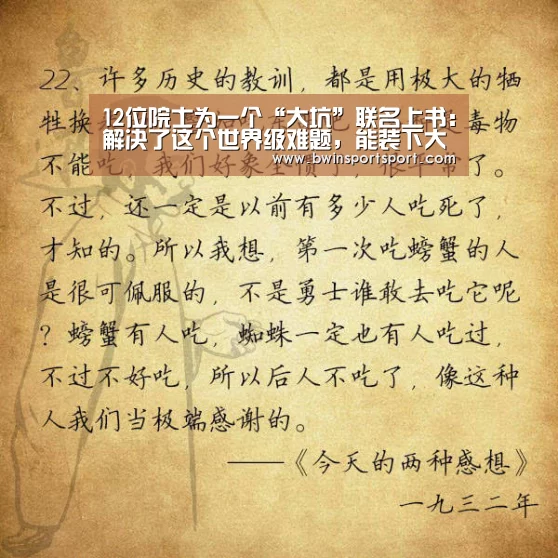 22、许多历史的教训，都是用极大的牺
12位院士为一个“大坑”联名上书：
解决了这个世界级难题，能装下大
www.bwinsportsport.com
牲换
毒物
不能吃，我们好象全惯了，很平常了。
不过，还一定是以前有多少人吃死了，
才知的。所以我想，第一次吃螃蟹的人
是很可佩服的，不是勇士谁敢去吃它呢
？螃蟹有人吃，蜘蛛一定也有人吃过，
不过不好吃，所以后人不吃了，像这种
人我们当极端感谢的。
——《今天的两种感想》
一九三二年